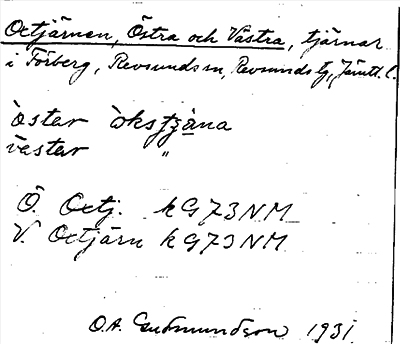 Octjärnen, Östra och Västra, tjärnar
i Förberg, Revsunds sn, Revsunds tg, Jämtl. l.
òstar òksʈʂäna
vèstar "
Ö. Octj. kG73NM
V. Octjärn kG73NM
O.A. Gudmundson 1931